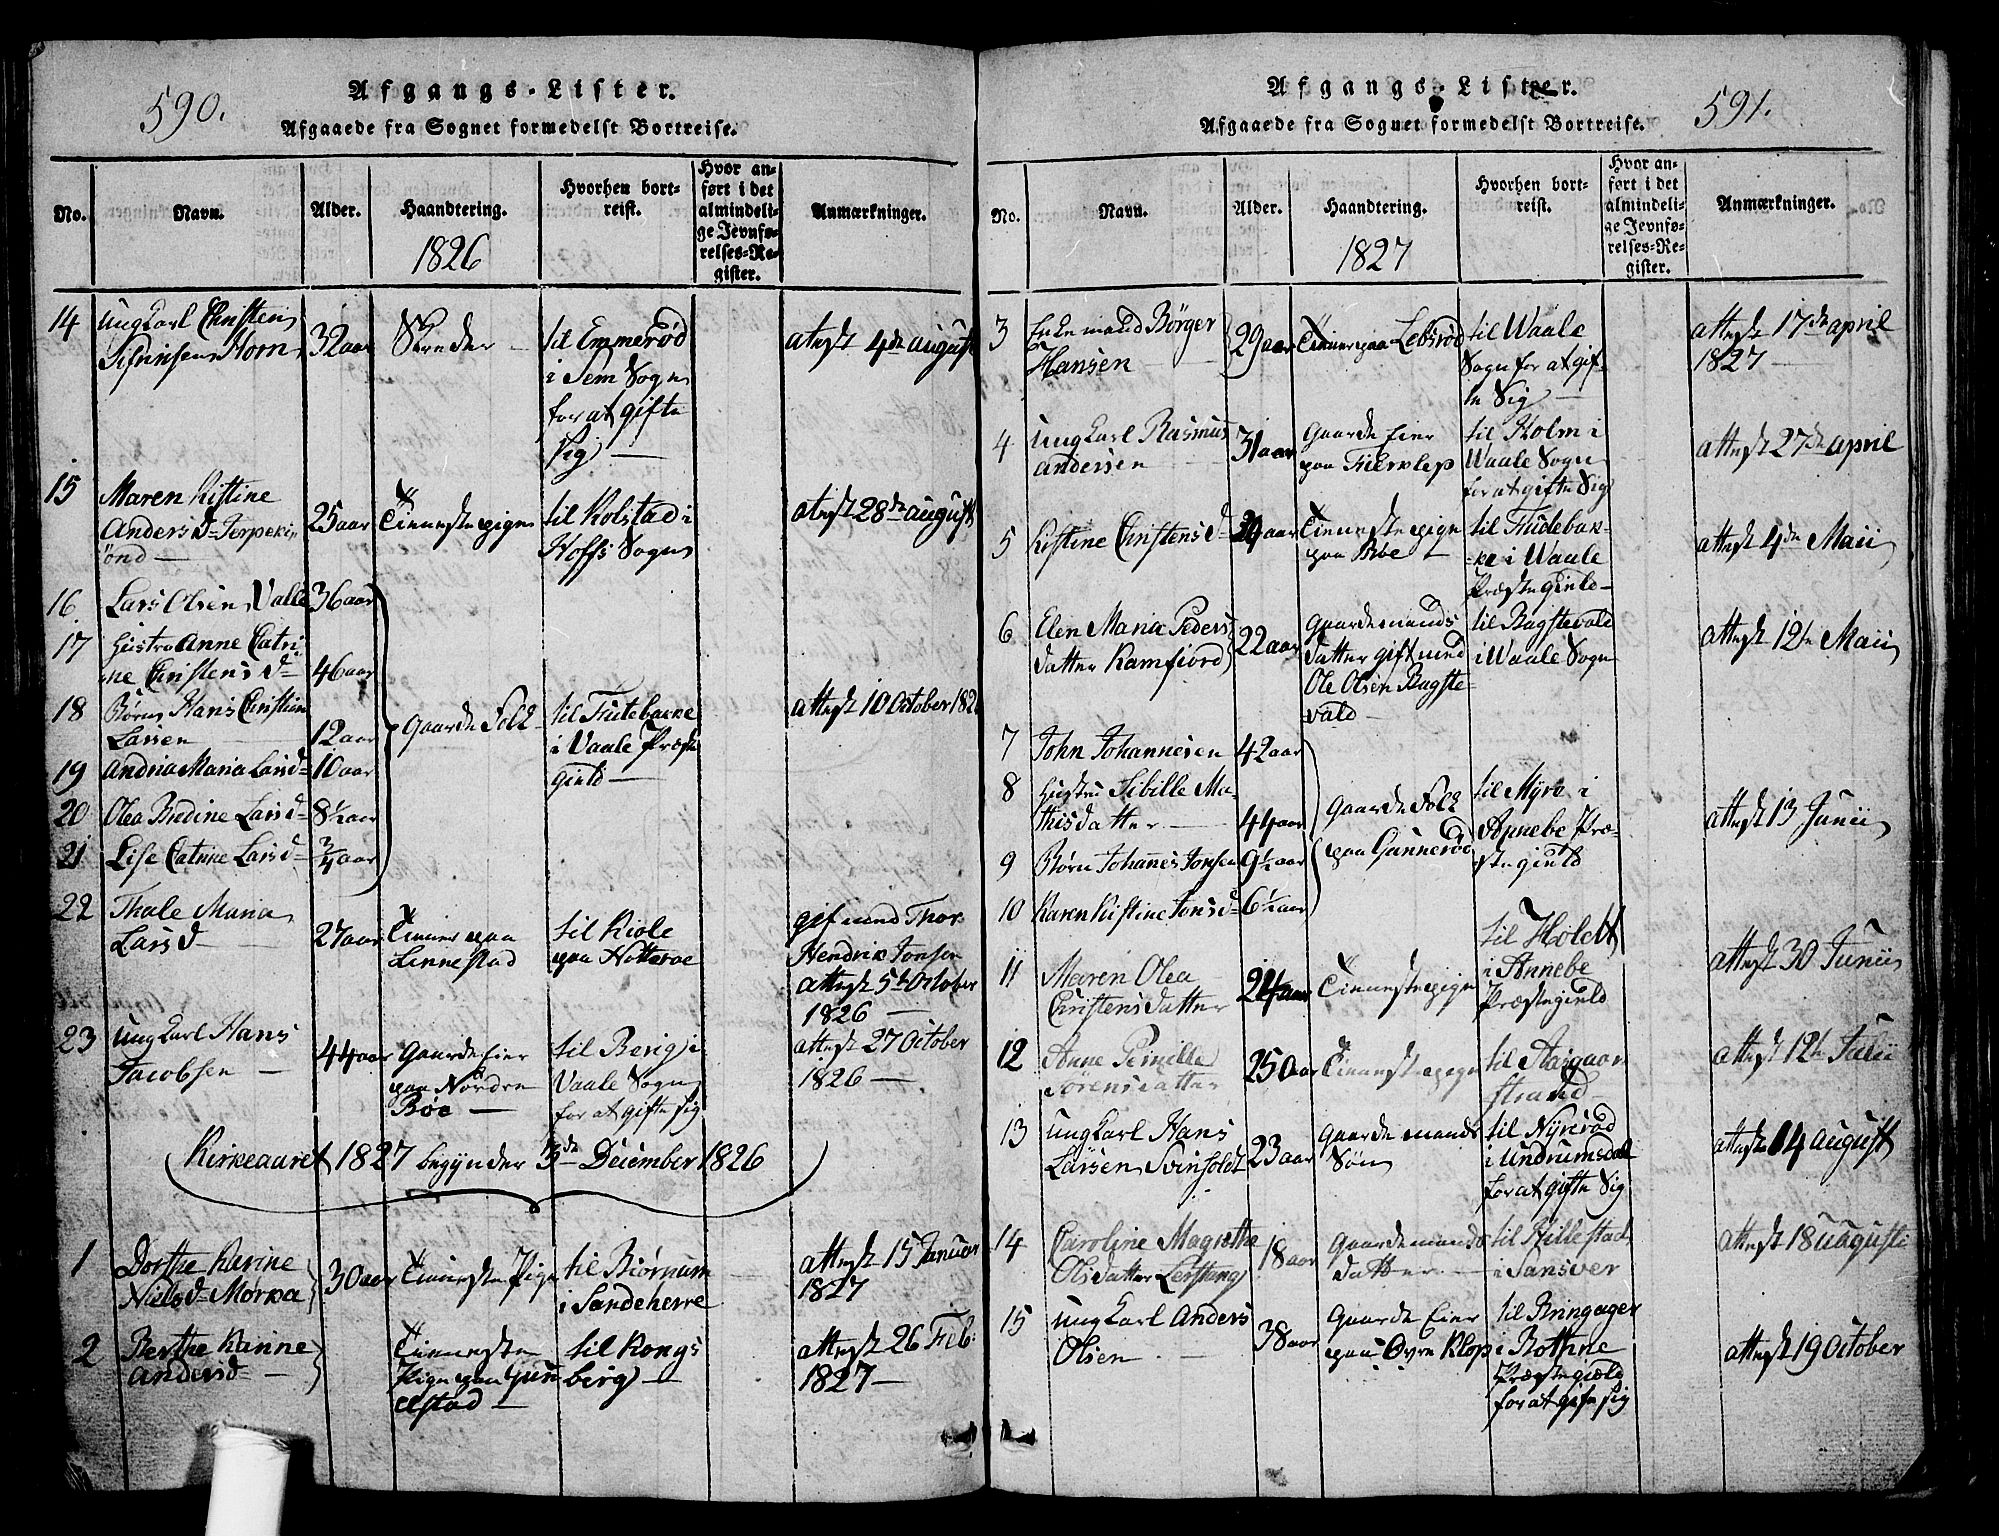 590.
Afgangs-Lister.
Afgaaede fra Sognet formedelst Bortreise.
No. Navn. Alder. Haandtering. Hvorhen bortreist. Hvor anført i det almindelige Jevnførelses-Register. Anmærkninger.
1826
14 ungkarl Christen Horn 32 aar Skreder til Emmerød i Sem Sogn for at gifte Sig attest 4de august
15 Maren Kistine Anders D 25 aar Tienneste pigen til Kolstad i Hoffs Sogn attest 28de august
16 Lars Olsen Valle 36 aar
17 Hustro Anne Catrine Christens D 46 aar
18 Børn Hans Christian Larsen 12 aar Gaarde Folk til i Vaale Præste Gield attest 10 October 182
19 Andria Maria Lars D 10 aar
20 Olea Bredine Lars D 8½ aar
21 Lise Catrine Lars D ¾ aar
22 Thale Maria Lars D 27 aar Tienner paa Linnestad til Kiøle paa gif med Thor Hendrik Jonsen attest 5te October 1826
23 ungkarl Hans Jacobsen 44 aar Gaarde Eier paa Nordre Bøe til Berig i Vaale Sogn for at gifte sig attest 27 October 1826
Kirkeaaret 1827 begynder 3de December 1826
1 Dorthe Karine Niels D Mørka 30 aar Tienneste Pige til Biørnum i Sandeherre attest 15 Januar 1827
2 Berthe Karine Anders D Tienneste Pige paa til Kongsberg attest 26 Feb: 1827
591.
Afgangs-Lister.
Afgaaede fra Sognet formedelst Bortreise.
No. Navn. Alder. Haandtering. Hvorhen bortreist. Hvor anført i det almindelige Jevnførelses-Register. Anmærkninger.
1827
3 Enkemand Børger Hansen 29 aar Tienner paa Lebsrød til Waale Sogn for at gifte Sig attest 17de april 1827
4 ungkarl Rasmus andersen 31 aar Gaarde Eier paa til Holm i Waale Sogn for at gifte Sig attest 27de april
5 Kistine Christens D aar Tienneste pige paa Bøe til i Waale Præstegield attest 4de Maii
6 Elen Maria Peders datter Ramfiord 22 aar Gaardemands datter gift med Ole Olsen Bagstevald til Bagstevald i Waale Sogn attest 12te Maii
7 John Johannesen 42 aar
8 Hustru Sibille Mathisdatter 44 aar Gaarde Folk paa Gannerød til Myre i Annebe Præstegield attest 13 Junii
9 Børn Johannes Jonsen 9½ aar
10 Karen Kistine Jons D 6½ aar
11 Maren Olea Christensdatter 24 aar Tienneste pige til Holdt i Annebe Præstegield attest 30 Junii
12 Anne Pernille Sørensdatter 25 aar Tienneste pige til Aasgaardstrand attest 12te Julii
13 ungkarl Hans Larsen Svinholdt 23 aar Gaardemands Søn til Nyrerød i Undrumsdal for at gifte Sig attest 14 august
14 Caroline Magrethe Olsdatter Lerstang 18 aar Gaardemands datter til Hillestad i Sansver attest 18 auguste
15 ungkarl Anders Olsen 38 aar Gaarde Eier paa Øvre Klop til Bringager i Bothne Præstegield for at gifte sig attest 19 October